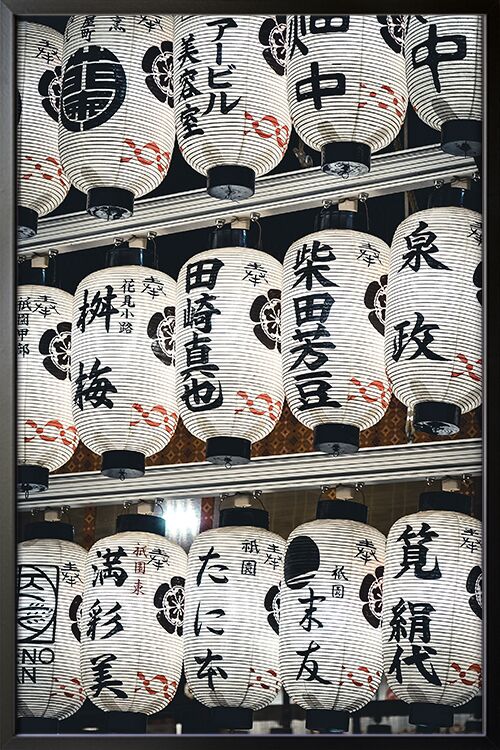 奉
アービル
美容室
畑中
中
祇園甲部
奉
花見小路
桝梅
奉
田崎真也
奉
柴田芳豆
奉
泉政
奉
NO
N
奉
祇園東
満彩美
奉
祇園
たに本
奉
祇園
末友
奉
筧
絹代